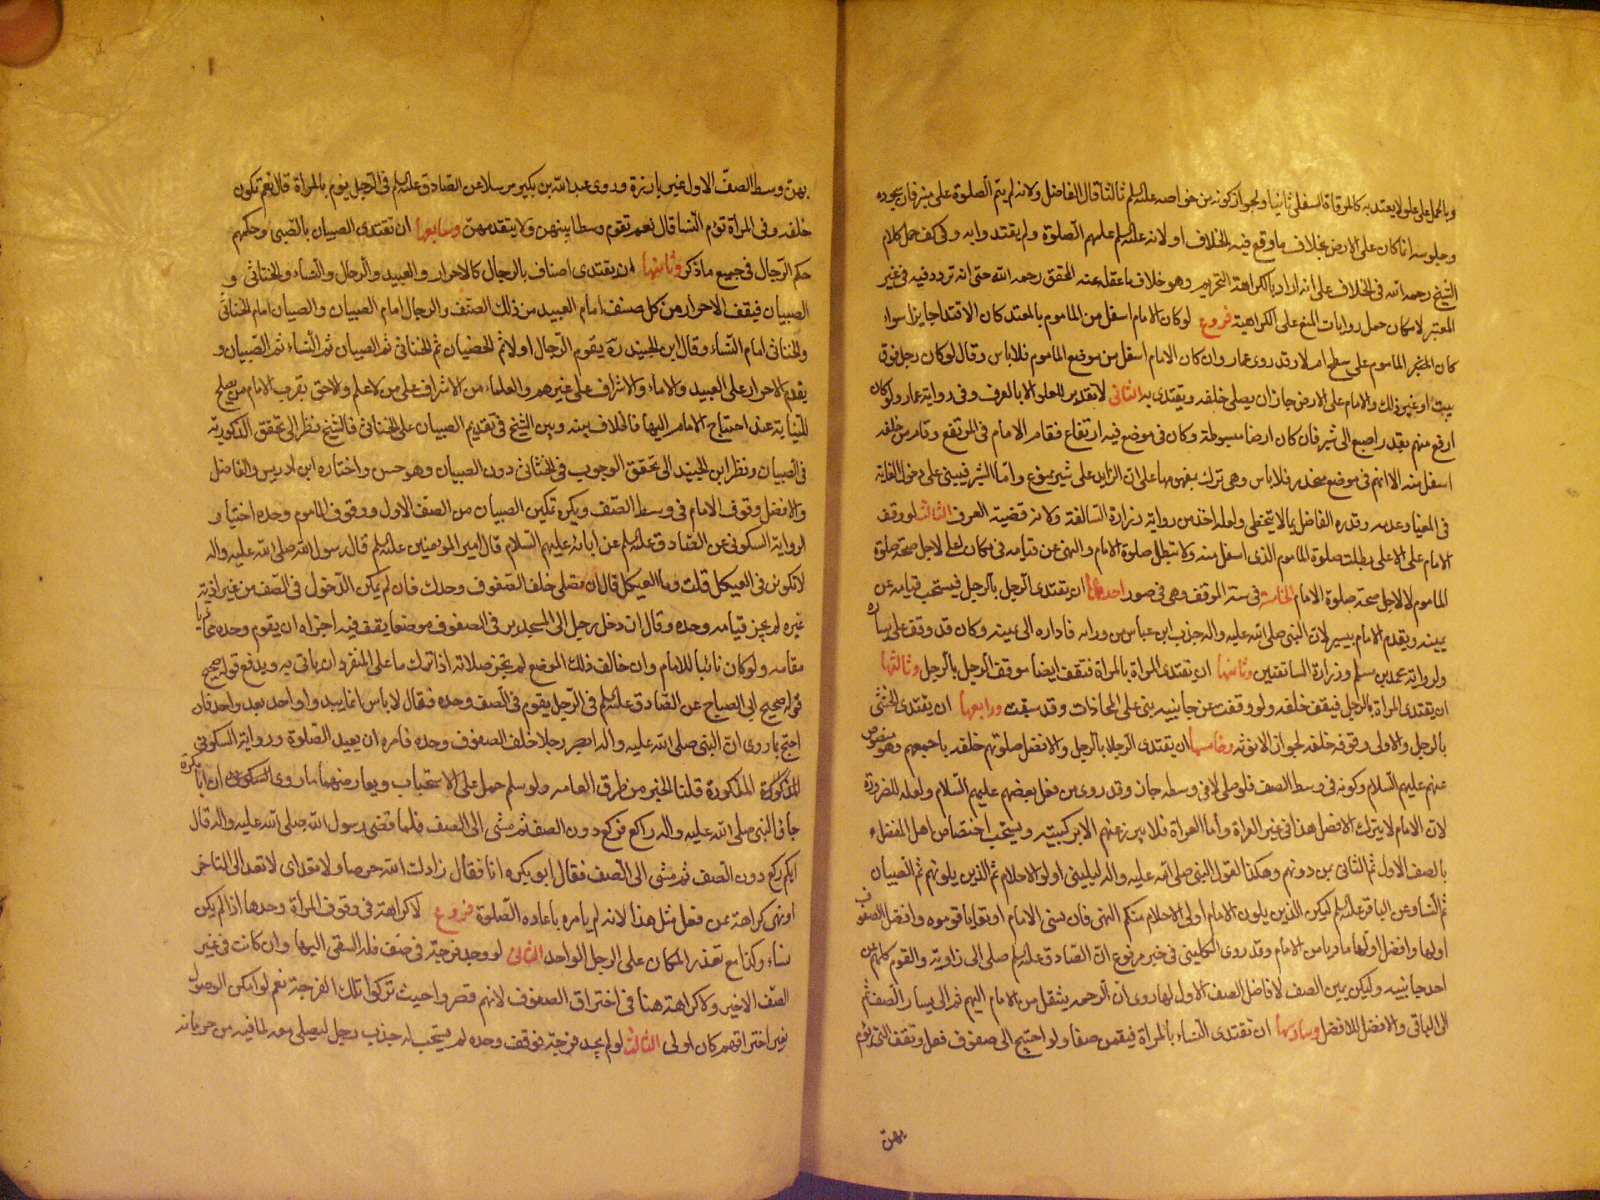 وبالحمل على علو لا يعتد به كالمرقاة السفلى ثانيا ولجواز كونه من خواصه عليه السلم ثالثا قال الفاضل ولانه لم يتم الصلوة على منبر فان سجوده
وجلوسه انما كان على الارض بخلاف ما وقع فيه الخلاف او لانه عليه السلم علمهم الصلوة ولم يقتدوا به وفي كف حمل كلام
الشيخ رحمه الله في الخلاف على انه اراد بالكراهة التحريم وهو خلاف ما عقله عنه المحقق رحمه الله حتى انه تردد فيه في غير
المعتبر لامكان حمل روايات المنع على الكراهية فروع لو كان الامام اسفل من الماموم بالمعتد كان الاقتدا جايزا سواء
كان الماموم على سطح ام لا وقد روى عمار وان كان الامام اسفل من موضع الماموم فلا باس وقال لو كان رجل فوق
بيت او غير ذلك والامام على الارض جاز ان يصلى خلفه ويقتدى به الثانى لا تقدير للعلو الا بالعرف وفى رواية عمار ولو كان
ارفع منهم بقدر اصبع الى شبر فان كان ارضا مبسوطة وكان فى موضع فيه ارتفاع فقام الامام فى المرتفع وقام من خلفه
اسفل منه الا انهم فى موضع منحدر فلا باس وهى تدل بمفهومها على ان الزايد على شبر ممنوع واما الشبر فيبنى على دخول الغاية
فى المغيا وعدمه وقدره الفاضل بما لا يتخطى ولعله اخذه من رواية زرارة السالفة ولانه قضية العرف الثالث لو وقف
الامام على الاعلى بطلت صلوة الماموم الذى اسفل منه ولا تبطل صلوة الامام والنهى عن قيامه فى مكان اعلى لاجل صحة صلوة
الماموم لا لاجل صحة صلوة الامام الخامسة فى سنة الموقف وهى فى صور احدها ان يقتدى الرجل بالرجل فيستحب قيامه عن
يمينه ويقدم الامام بيسير لان النبى صلى الله عليه واله جذب ابن عباس من ورائه فاداره الى يمينه وكان قد وقف على يساره
ولرواية محمد بن مسلم وزرارة السابقتين وثانيها ان يقتدى المراة بالمراة فتقف ايضا موقف الرجل بالرجل وثالثها
ان يقتدى المراة بالرجل فيقف خلفه ولو وقفت عن جانبيه بنى على المحاذات وقد سبقت ورابعها ان يقتدى الخنثى
بالرجل والاولى وقوفه خلفه لجواز الانوثة وخامسها ان يقتدى الرجلا بالرجل والافضل صلوتهم خلفه باجمعهم وهو منصوص
عنهم عليهم السلام وكونه فى وسط الصف فلو صلى لا فى وسطه جاز وقد روى من فعل بعضهم عليهم السلام ولعله للضرورة
لان الامام لا يترك الافضل هذا فى غير العراة واما العراة فلا يبرز عنهم الا بركبتيه ويستحب اختصاص اهل الفضل
بالصف الاول ثم الثانى من دونهم وهكذا لقول النبى صلى الله عليه واله ليلينى اولو الاحلام ثم الذين يلونهم ثم الصبيان
ثم النساء وعن الباقر عليه السلم ليكن الذين يلون الامام اولى الاحلام منكم والنهى فان نسى الامام او تعايا قوموه وافضل الصفوف
اولها وافضل اولها ما دنا من الامام وقد روى الكلينى فى خبر مرفوع ان الصادق عليه السلم صلى الى زاوية والقوم كلهم عن
احد جانبيه وليكن يمين الصف لافاضل الصف الاول لما روى ان الرحمة ينتقل من الامام اليهم ثم الى يسار الصف ثم
الى الباقى والافضل للافضل وسادسها ان تقتدى النساء بالمراة فيقفن صفا ولو احتيج الى صفوف فعل وتقف التى تؤم
بهن
بهن وسط الصف الاول غير بارزة وروى عبد الله بن بكير مرسلا عن الصادق عليه السلم فى الرجل يؤم بالمراة قال نعم تكون
خلفه وفى المراة تؤم النسا قال نعم تقوم وسطا بينهن ولا يتقدمهن وسابعها ان تقتدى الصبيان بالصبى وحكمهم
حكم الرجال فى جميع ما ذكر وثامنها ان يقتدى اصناف بالرجال كالاحرار والعبيد والرجال والنساء والخناثى و
الصبيان فيقف الاحرار من كل صنف امام العبيد من ذلك الصنف والرجال امام الصبيان والصبيان امام الخناثى
والخناثى امام النساء وقال ابن الجنيد ره يقوم الرجال اولا ثم الخصيان ثم الخناثى ثم الصبيان ثم النساء ثم الصبيات و
يقدم الاحرار على العبيد والاماء والاشراف على غيرهم والعلماء من الاشراف على من لا علم له والاحق بقرب الامام من يصلح
للنيابة عند احتياج الامام اليها فالخلاف بينه وبين الشيخ فى تقديم الصبيان على الخناثى فالشيخ نظر الى تحقق الذكورية
فى الصبيان ونظر ابن الجنيد الى تحقق الوجوب فى الخناثى دون الصبيان وهو حسن واختاره ابن ادريس والفاضل
والافضل وقوف الامام فى وسط الصف ويكره تمكين الصبيان من الصف الاول ووقوف الماموم وحده اختيار
لرواية السكونى عن الصادق عليه السلم عن ابائه عليهم السلام قال امير المومنين عليه السلم قال رسول الله صلى الله عليه واله
لا تكونن فى العيكل قلت وما العيكل قال ان تصلى خلف الصفوف وحدك فان لم يكن الدخول فى الصف من غير اذية
غيره لم يجز قيامه وحده وقال ان دخل رجل الى المسجد ير فى الصفوف موضعا يقف فيه اجزاه ان يقوم وحده محاذيا
مقامه ولو كان نائبا للامام وان خالف ذلك الموضع لم تجز صلاته اذا ترك ما على المنفرد ان ياتى به ويدفع قوله صحيح
قوله صحيح ابى الصباح عن الصادق عليه السلم فى الرجل يقوم فى الصف وحده فقال لا باس انما يبدوا واحد بعد واحد فان
احتج بما روى ان النبى صلى الله عليه واله ابصر رجلا خلف الصفوف وحده فامره ان يعيد الصلوة ورواية السكونى
المذكورة قلنا الخبر من طرق العامه ولو سلم حمل على الاستحباب ويعارضهما ما روى ان ابا بكرة
جاء فى النبى صلى الله عليه واله راكع فركع دون الصف ثم مشى الى الصف فلما قضى رسول الله صلى الله عليه واله قال
ايكم ركع دون الصف ثم مشى الى الصف فقال ابو بكره انا فقال زادك الله حرصا ولا تعد اى لا تعد الى التاخر
او نهى كراهة عن فعل مثل هذا لانه لم يامره باعاده الصلوة فروع لا كراهة فى وقوف المراة وحدها اذا لم يكن
نساء وكذا مع تعذر المكان على الرجل الواحد الثانى لو وجد فرجة فى صف فله السعى اليها وان كانت فى غير
الصف الاخير ولا كراهة هنا فى اختراق الصفوف لانهم قصروا حيث تركوا تلك الفرجة نعم لو امكن الوصول
بغير اختراقهم كان اولى الثالث لو لم يجد فرجة فوقف وحده لم يستحب له جذب رجل ليصلى معه لما فيه من حرمانه